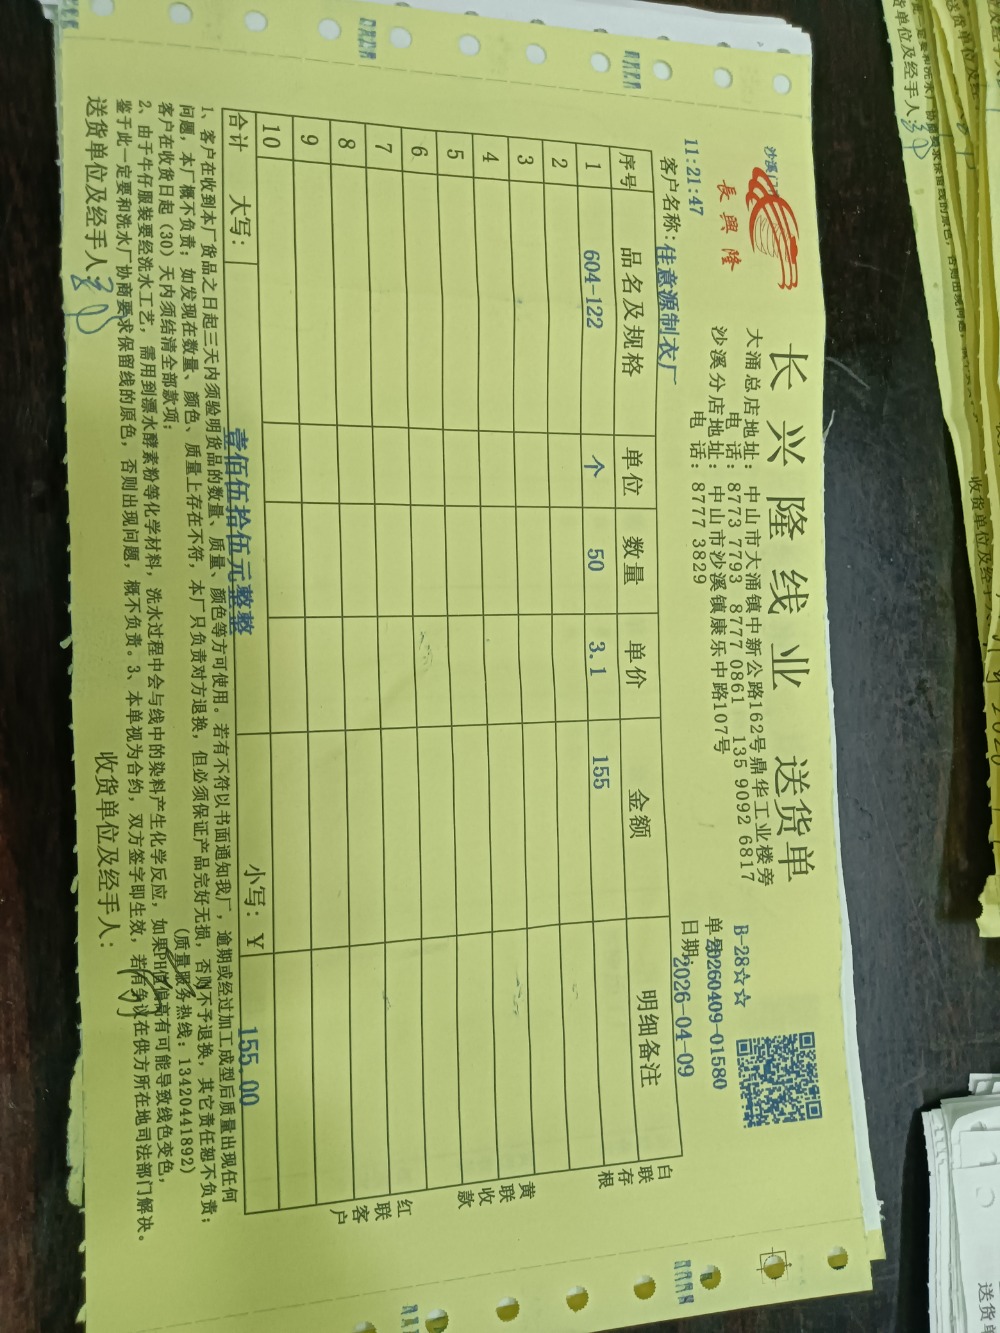 沙溪门
長興隆
长兴隆线业 送货单
大涌总店地址：中山市大涌镇中新公路162号鼎华工业楼旁
电 话：8773 7793 8777 0861 135 9092 6817
沙溪分店地址：中山市沙溪镇康乐中路107号
电 话：8777 3829
B-28☆☆
单号20260409-01580
11:21:47
日期:2026-04-09
客户名称:佳意源制衣厂
序号 品名及规格 单位 数量 单价 金额 明细备注
1 604-122 个 50 3.1 155
2
3
4
5
6
7
8
9
10
合计 大写： 壹佰伍拾伍元整整 小写：￥ 155.00
白联存根
黄联收款
红联客户
1、客户在收到本厂货品之日起三天内须验明货品的数量、质量、颜色等方可使用。若有不符以书面通知我厂，逾期或经过加工成型后质量出现任何
问题，本厂概不负责；如发现在数量、颜色、质量上存在不符，本厂只负责对方退换，但必须保证产品完好无损，否则不予退换，其它责任恕不负责；
客户在收货日起（30）天内须结清全部款项；
(质量服务热线：13420441892)
2、由于牛仔服装要经洗水工艺，需用到漂水酵素粉等化学材料，洗水过程中会与线中的染料产生化学反应，如果PH值偏高有可能导致线色变色，
鉴于此一定要和洗水厂协商要求保留线的原色，否则出现问题，概不负责。3、本单视为合约，双方签字即生效，若有争议在供方所在地司法部门解决。
送货单位及经手人：
收货单位及经手人：
单位及经手人:
收货单位及经手
送货单